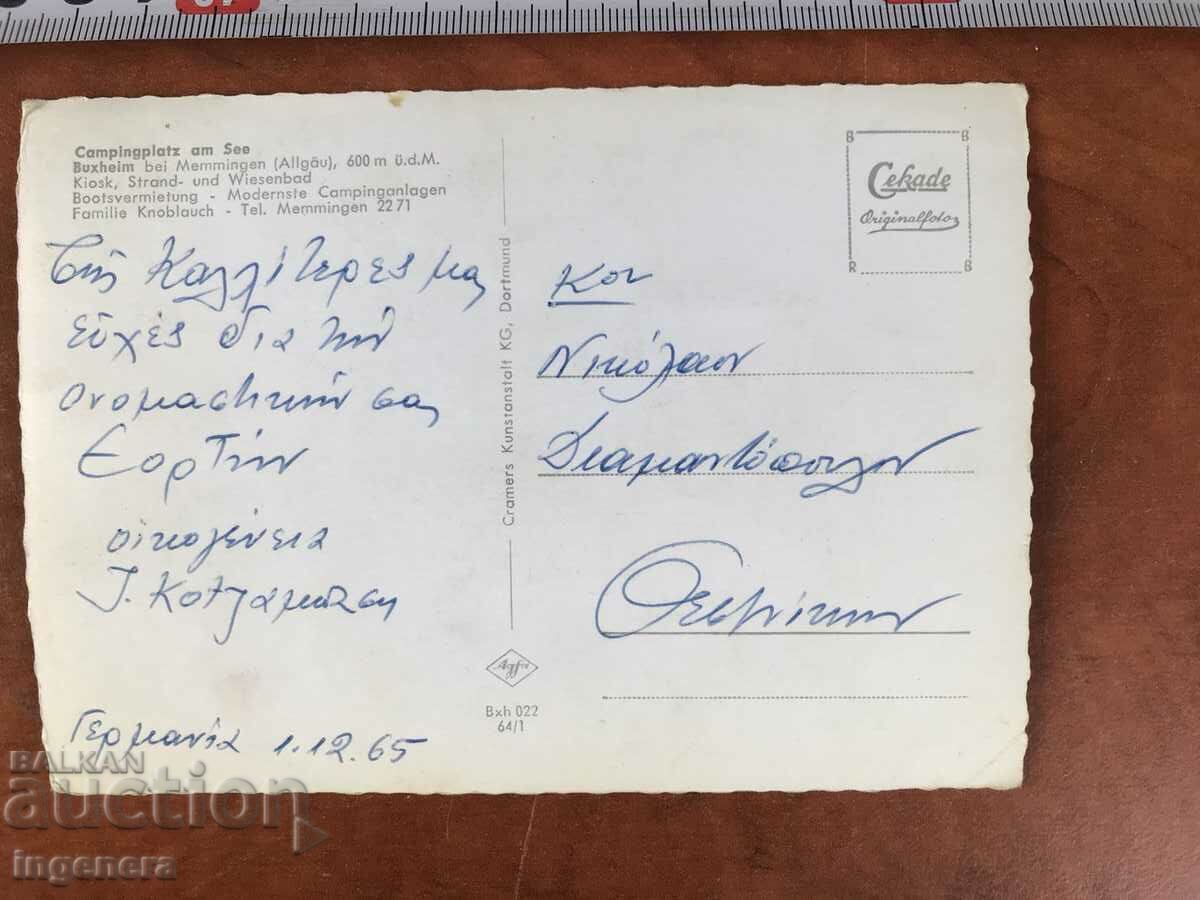 Campingplatz am See
Buxheim bei Memmingen (Allgäu), 600 m ü.d.M.
Kiosk, Strand- und Wiesenbad
Bootsvermietung - Modernste Campinganlagen
Familie Knoblauch - Tel. Memmingen 22 71
Τὶς καλλίτερες μας
εὐχές δια τὴν
ονομαστικήν σας
Εορτήν
οικογένεια
Ι. Κοτζαμπαση
Γερμανία 1.12.65
Cramers Kunstanstalt KG, Dortmund
Agfa
Bxh 022
64/1
B B
Cekade
Originalfoto
B R
Κον
Νικόλαον
Διαμαντόπουλον
BALKAN
auction
ingenera